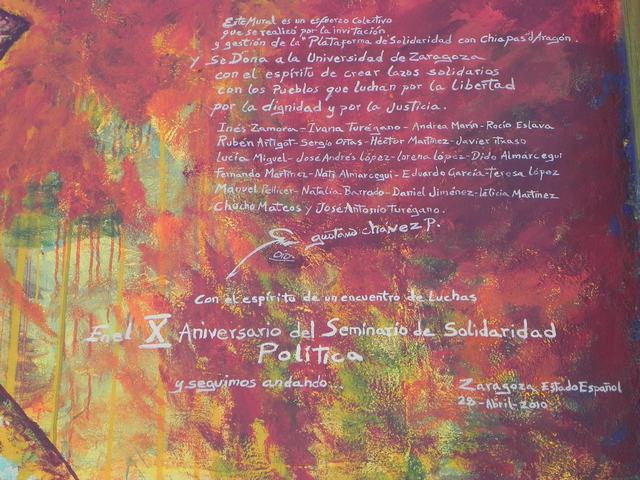 Este Mural es un esfuerzo colectivo
que se realizó por la invitación
y gestión de la "Plataforma de Solidaridad con Chiapas d'Aragón.
y se Dona a la Universidad de Zaragoza
con el espíritu de crear lazos solidarios
con los Pueblos que luchan por la libertad
por la dignidad y por la Justicia.
Inés Zamora - Ivana Turégano - Andrea Marín - Rocío Eslava
Rubén Artigot - Sergio Ortas - Héctor Martínez - Javier Itxaso
Lucía Miguel - José Andrés López - Lorena López - Dido Almárcegui
Fernando Martínez - Nati Almarcegui - Eduardo García - teresa López
Manuel Pellicer - Natalia Barrado - Daniel Jiménez - leticia Martínez
Chucho Mateos y José Antonio Turégano.
gustavo chávez P.
Con el espíritu de un encuentro de Luchas
En el X Aniversario del Seminario de Solidaridad
Política
y seguimos andando...
Zaragoza Estado Español
28 - Abril - 2010